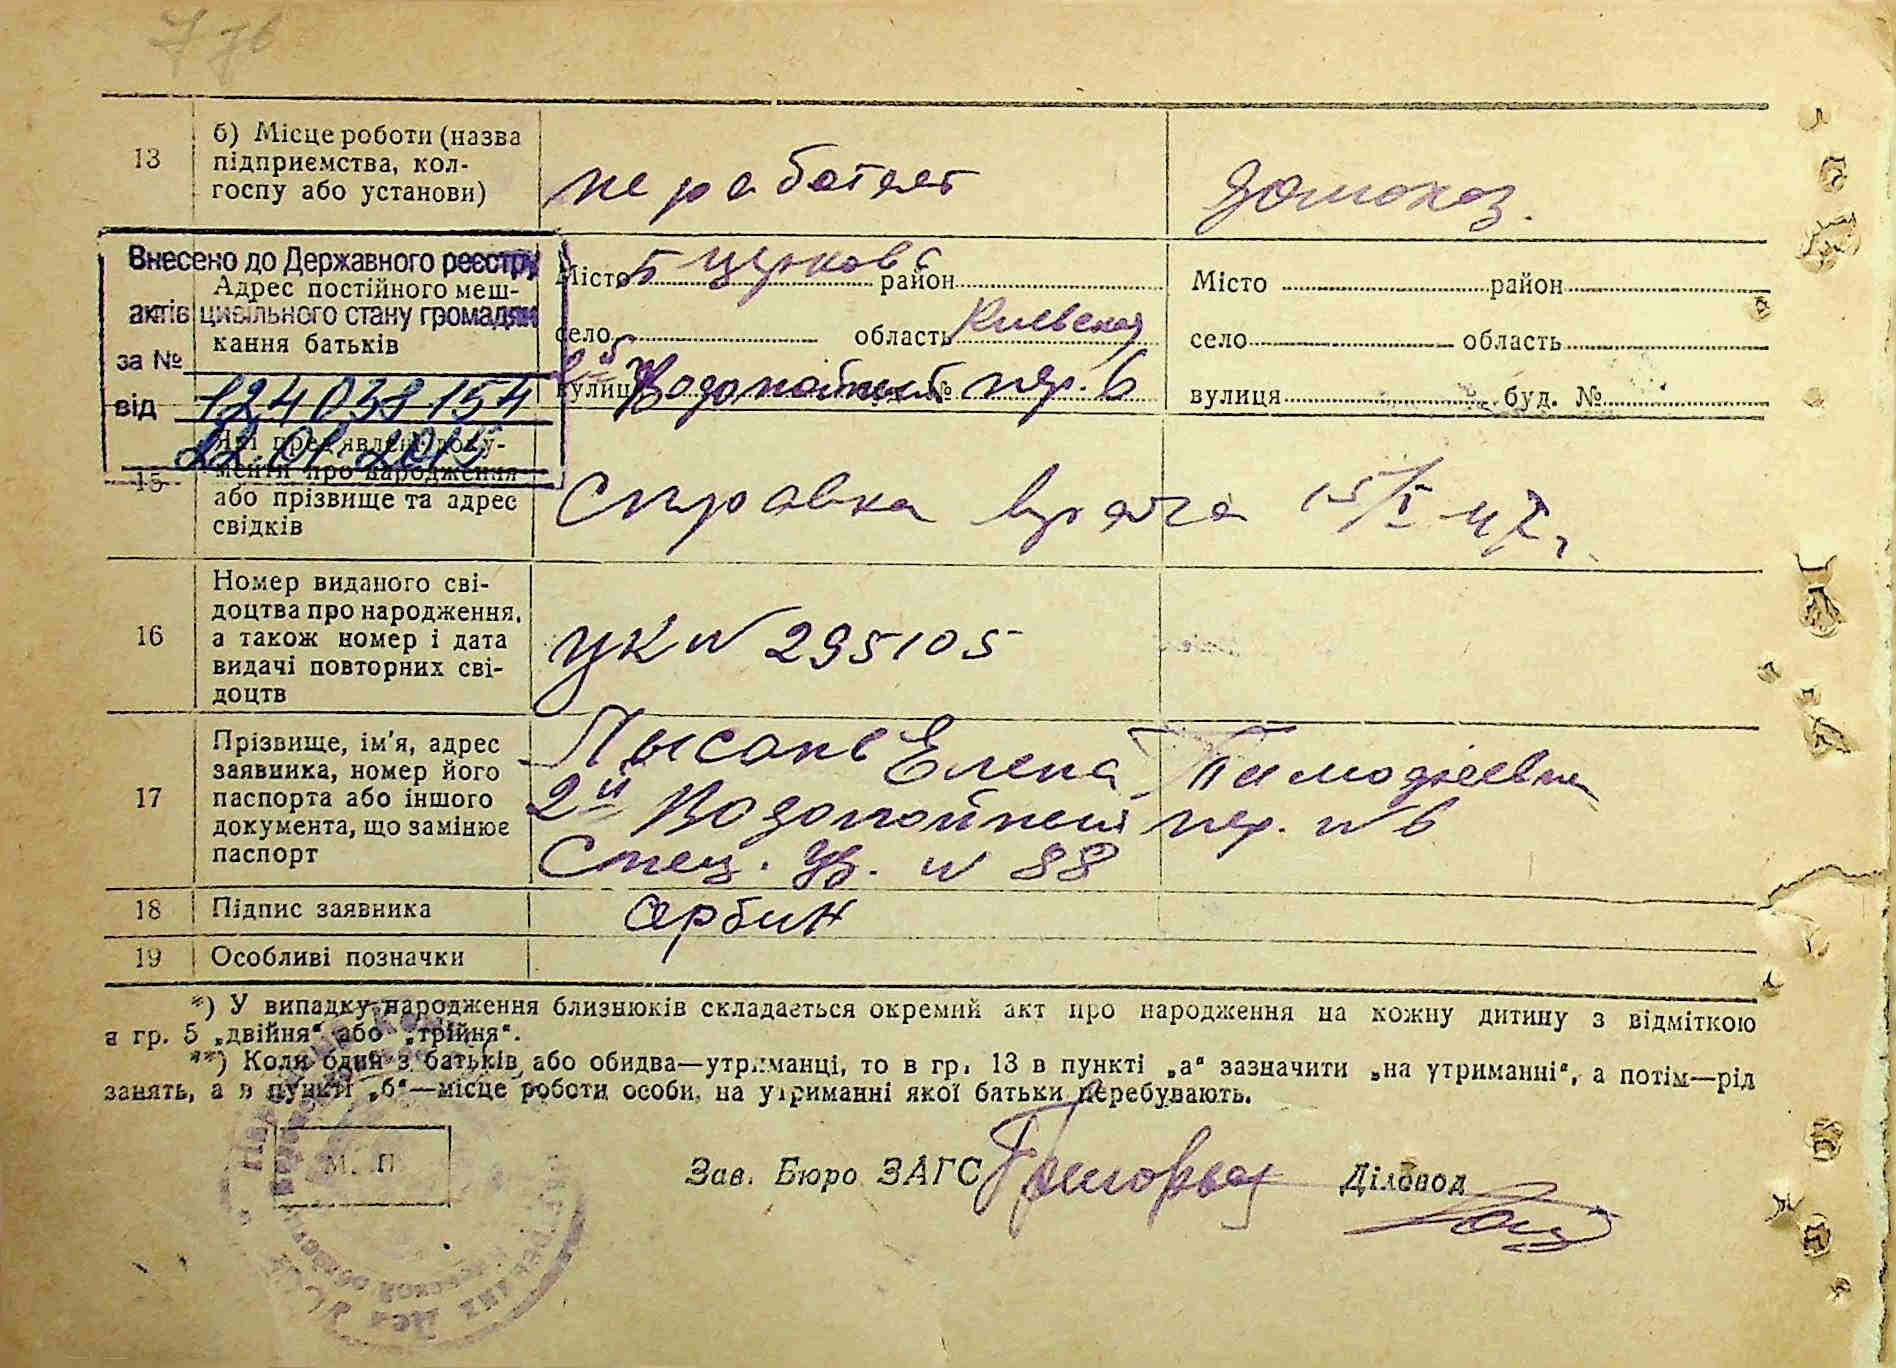 7 зв
13
б) Місце роботи (назва
підприємства, кол-
госпу або установи)
не работает
домохоз.
Внесено до Державного реєстру
актів цивільного стану громадян
за № 124038154
від 22.01.2015
Адрес постійного меш-
кання батьків
Місто Б Церковь район
село область Киевская
вулиця 2й Водопойный № пер. 6
Місто район
село область
вулиця буд. №
15
Які пред'явлені доку-
менти про народження
або прізвище та адрес
свідків
Справка врача 15/I 47 г.
16
Номер виданого сві-
доцтва про народження,
а також номер і дата
видачі повторних сві-
доцтв
УК N 295105
17
Прізвище, ім'я, адрес
заявника, номер його
паспорта або іншого
документа, що замінює
паспорт
Лысань Елена Тимофеевна
2й Водопойный пер. N 6
Спец. уд. N 88
18
Підпис заявника
19
Особливі позначки
*) У випадку народження близнюків складається окремий акт про народження на кожну дитину з відміткою
в гр. 5 „двійня“ або „трійня“.
**) Коли один з батьків або обидва—утриманці, то в гр. 13 в пункті „а“ зазначити „на утриманні“, а потім—рід
занять, а в пункті „б“—місце роботи особи, на утриманні якої батьки перебувають.
М. П.
Зав. Бюро ЗАГС
Діловод